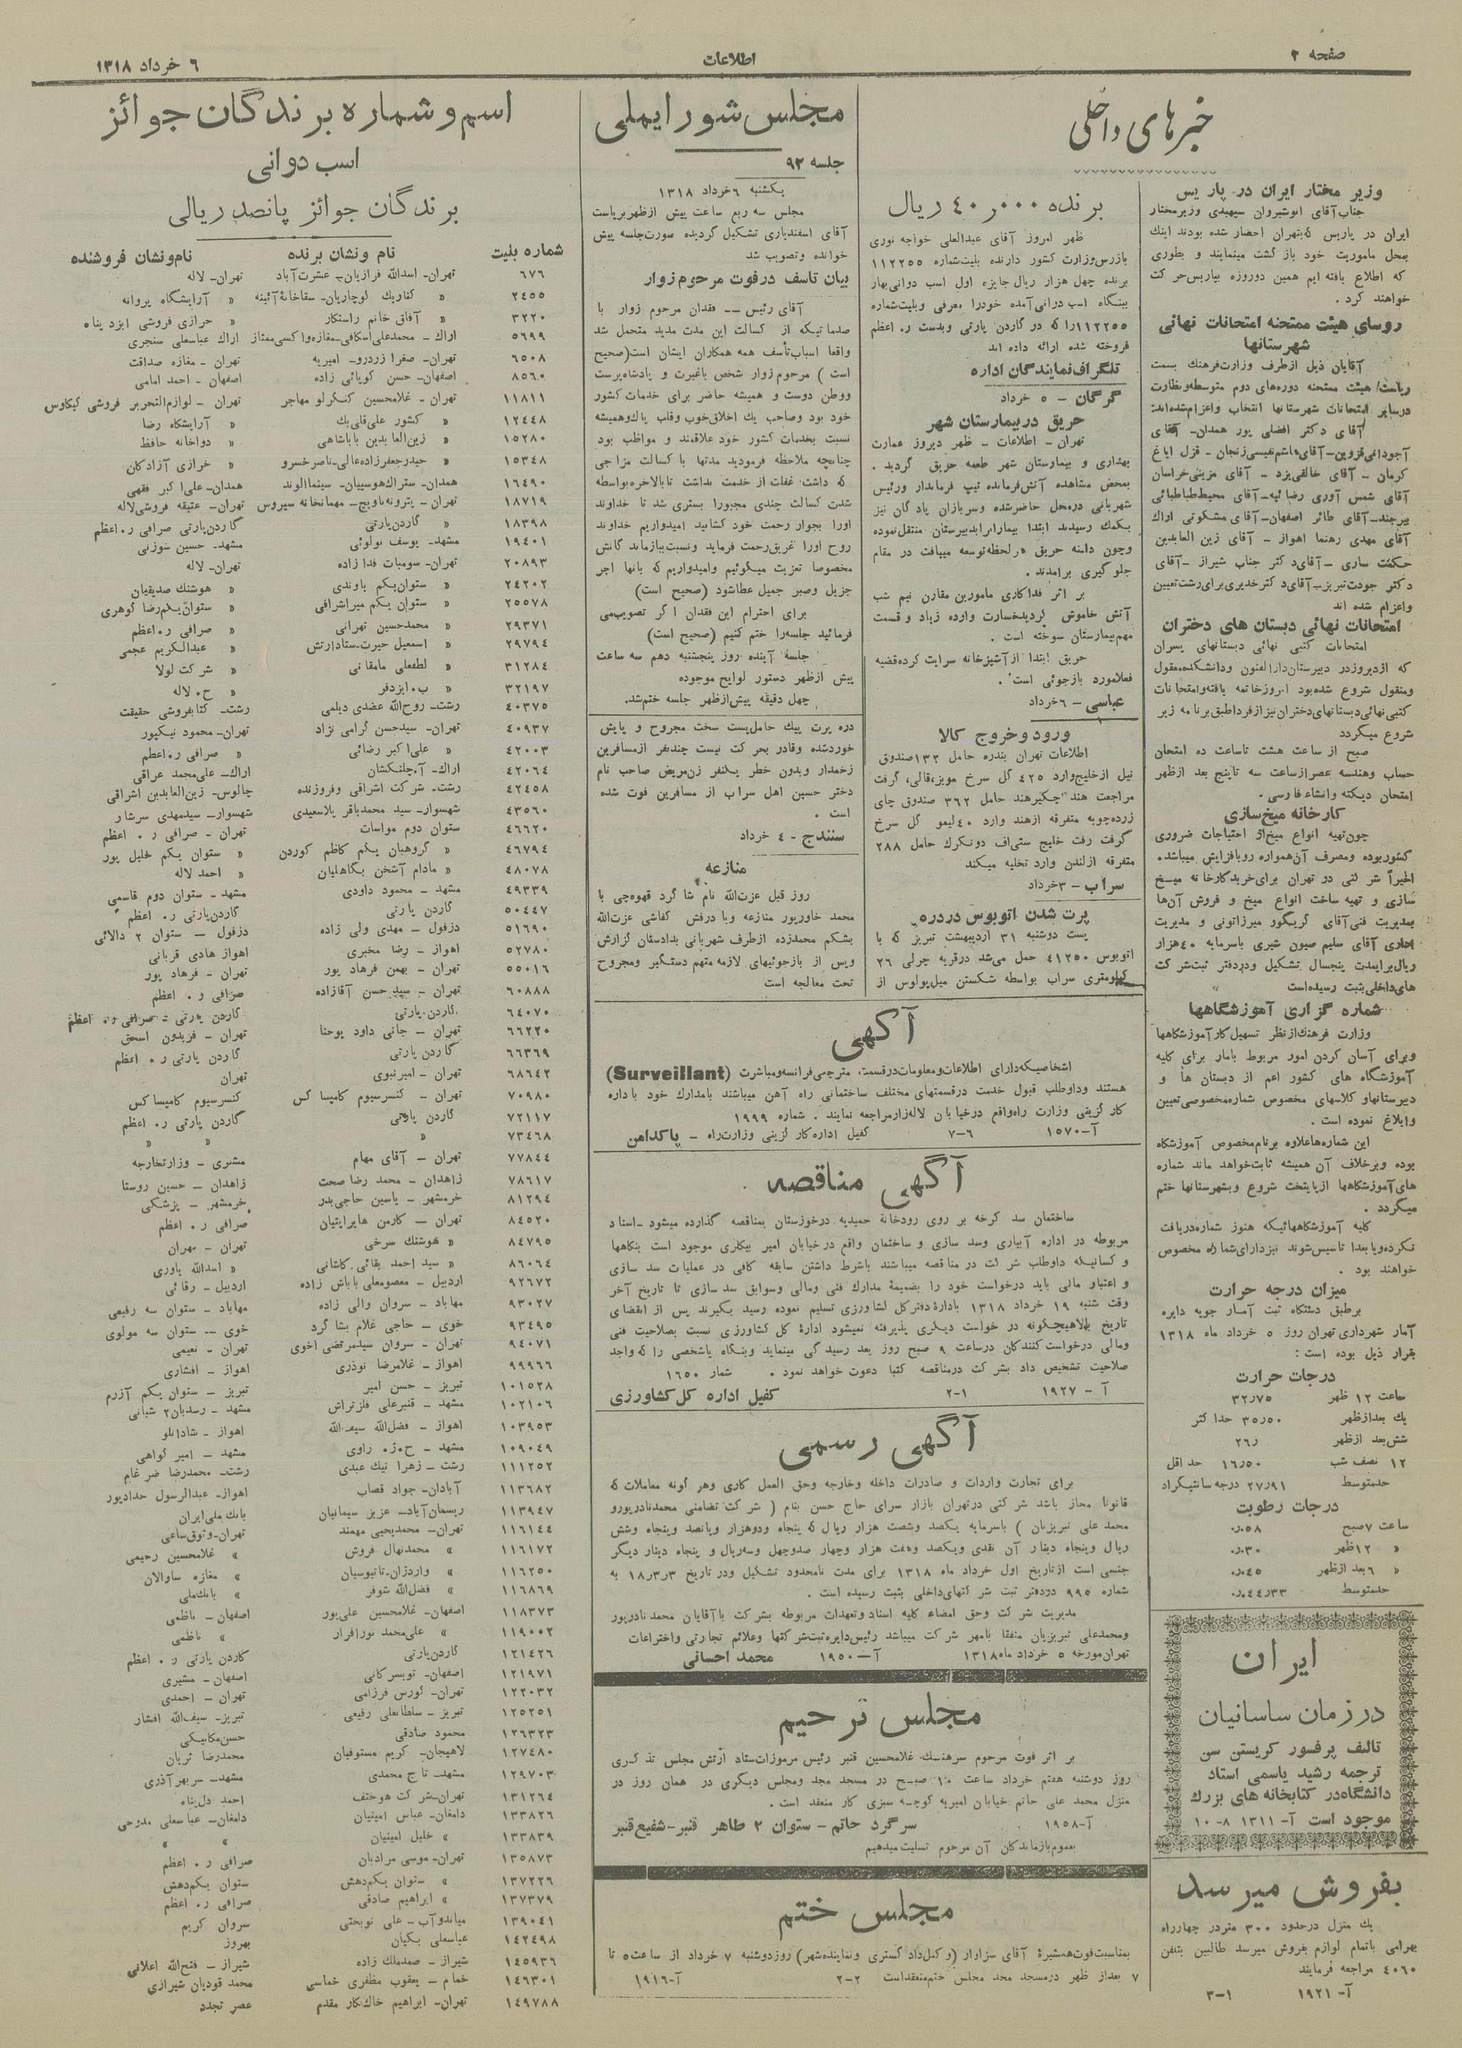 صفحه ۲
اطلاعات
۶ خرداد ۱۳۱۸
خبرهای داخلی
وزیر مختار ایران در پاریس
جناب آقای انوشیروان سپهبدی وزیرمختار
ایران در پاریس که بتهران احضار شده بودند اینک
بمحل ماموریت خود بازگشت مینمایند و بطوری
که اطلاع یافته ایم همین دوروزه بپاریس حرکت
خواهند کرد .
روسای هیئت ممتحنه امتحانات نهائی
شهرستانها
آقایان ذیل ازطرف وزارت فرهنگ بسمت
ریاست هیئت ممتحنه دوره‌های دوم متوسطه ونظارت
درسایر امتحانات شهرستانها انتخاب واعزام شده‌اند:
آقای دکتر افضلی پور همدان - آقای
کرمان - آقای خالقی یزد - آقای مزینی خراسان
آقای شمس آوری رضائیه - آقای محیط طباطبائی
بیرجند - آقای طائر اصفهان - آقای مشکوتی اراک
آقای مهدی رهنما اهواز - آقای زین العابدین
حکمت ساری - آقای دکتر جناب شیراز - آقای
دکتر جودت تبریز - آقای دکتر خدیری برای رشت تعیین
واعزام شده اند
امتحانات نهائی دبستان های دختران
امتحانات کتبی نهائی دبستانهای پسران
که ازدیروزدر دبیرستان دارالفنون ودانشکده معقول
ومنقول شروع شده بود امروزخاتمه یافته وامتحانات
کتبی نهائی دبستانهای دختران نیز از فردا طبق برنامه زیر
شروع میگردد
صبح از ساعت هشت تاساعت ده امتحان
حساب وهندسه عصرازساعت سه تاپنج بعد ازظهر
امتحان دیکته وانشاء فارسی .
کارخانه میخ‌سازی
چون تهیه انواع میخ از احتیاجات ضروری
کشور بوده ومصرف آن همواره روبافزایش میباشد.
اخیراً شرکتی در تهران برای خرید کارخانه میخ
سازی و تهیه ساخت انواع میخ و فروش آن‌ها
بمدیریت فنی آقای گریگور میرزاتونی و مدیریت
اداری آقای سلیم صیون شیری باسرمایه ۴۰ هزار
ریال برایمدت پنجسال تشکیل ودردفتر ثبت شرکت
های داخلی بثبت رسیده است
شماره گزاری آموزشگاهها
وزارت فرهنگ ازنظر تسهیل کار آموزشگاهها
وبرای آسان کردن امور مربوط بآمار برای کلیه
آموزشگاه های کشور اعم از دبستان ها و
دبیرستانها و کلاسهای مخصوص شماره مخصوصی تعیین
وابلاغ نموده است .
این شماره‌ها علاوه برنام مخصوص آموزشگاه
بوده وبرخلاف آن همیشه ثابت خواهد ماند شماره
های آموزشگاهها ازپایتخت شروع وبشهرستانها ختم
میگردد .
کلیه آموزشگاههائیکه هنوز شماره دریافت
نکرده ویا بعدا تاسیس شوند نیز دارای شماره مخصوص
خواهند بود .
میزان درجه حرارت
برطبق دستگاه ثبت آمار جویه دایره
آمار شهرداری تهران روز ۵ خرداد ماه ۱۳۱۸
بقرار ذیل بوده است :
درجات حرارت
ساعت ۱۲ ظهر ۳۲٫۷۵
یک بعدازظهر ۳۵٫۵۰ حداکثر
شش بعد ازظهر ۲۶ر
۱۲ نصف شب ۱۶٫۵۰ حد اقل
حدمتوسط ۲۷٫۹۱ درجه سانتیگراد
درجات رطوبت
ساعت ۷ صبح ۰٫۵۸
» ۱۲ ظهر ۰٫۳۰
» ۶ بعد ازظهر ۰٫۴۵
حدمتوسط ۰٫۴۴٫۳۳
ایران
درزمان ساسانیان
تالیف پرفسور کریستن سن
ترجمه رشید یاسمی استاد
دانشگاه در کتابخانه های بزرگ
موجود است آ- ۱۳۱۱ ۸-۱۰
بفروش میرسد
یک منزل درحدود ۳۰۰ متردر چهارراه
بهرامی باتمام لوازم بفروش میرسد طالبین بتلفن
۴۰۶۰ مراجعه فرمایند
آ- ۱۹۲۱ ۱-۳
برنده ۴۰٫۰۰۰ ریال
ظهر امروز آقای عبدالعلی خواجه نوری
بازرس وزارت کشور دارنده بلیت شماره ۱۱۲۲۵۵
برنده چهل هزار ریال جایزه اول اسب دوانی بهار
ببنگاه اسب دوانی آمده خودرا معرفی وبلیت شماره
۱۱۲۲۵۵ را که در گاردن پارتی وبدست ر. اعظم
فروخته شده ارائه داده اند
تلگراف نمایندگان اداره
گرگان - ۵ خرداد
حریق دربیمارستان شهر
تهران - اطلاعات - ظهر دیروز عمارت
بهداری و بیمارستان شهر طعمه حریق گردید .
بمحض مشاهده آتش فرمانده تیپ فرماندار ورئیس
شهربانی درمحل حاضرشده وسربازان پادگان نیز
بکمک رسیدند ابتدا بیماران را بدبیرستان منتقل نموده
وچون دامنه حریق هرلحظه توسعه مییافت در مقام
جلوگیری برآمدند .
بر اثر فداکاری مامورین مقارن نیم شب
آتش خاموش گردید خسارت وارده زیاد و قسمت
مهم بیمارستان سوخته است .
حریق ابتدا از آشپزخانه سرایت کرده قضیه
فعلا مورد بازجوئی است .
عباسی - ۶ خرداد
ورود وخروج کالا
اطلاعات تهران بندره حامل ۱۳۲ صندوق
نیل ازخلیج وارد ۴۲۵ گل سرخ مویز، قالی، گرفت
مراجعت هند چکیرهند حامل ۳۶۲ صندوق چای
زردچوبه متفرقه ازهند وارد ۴۰ لیمو گل سرخ
گرفت رفت خلیج ستی اف دونکرک حامل ۲۸۸
متفرقه ازلندن وارد تخلیه میکند
سراب - ۳ خرداد
پرت شدن اتوبوس دردره
پست دوشنبه ۳۱ اردیبهشت تبریز که با
اتوبوس ۴۱۲۵۰ حمل می‌شد درقریه چرلی ۲۶
کیلومتری سراب بواسطه شکستن میل پولوس از
مجلس شورایملی
جلسه ۹۲
یکشنبه ۶ خرداد ۱۳۱۸
مجلس سه ربع ساعت پیش ازظهر بریاست
آقای اسفندیاری تشکیل گردیده صورت جلسه پیش
خوانده وتصویب شد
بیان تاسف درفوت مرحوم زوار
آقای رئیس -- فقدان مرحوم زوار با
صدماتیکه از کسالت این مدت مدید متحمل شد
واقعا اسباب تأسف همه همکاران ایشان است (صحیح
است ) مرحوم زوار شخص باغیرت و پادشاه پرست
ووطن دوست و همیشه حاضر برای خدمات کشور
خود بود وصاحب یک اخلاق خوب وقلب پاک وهمیشه
نسبت بخدمات کشور خود علاقمند و مواظب بود
چنانچه ملاحظه فرمودید مدتها با کسالت مزاجی
که داشت غفلت از خدمت نداشت تا بالاخره بواسطه
شدت کسالت چندی مجبورا بستری شد تا خداوند
اورا بجوار رحمت خود کشانید امیدواریم خداوند
روح اورا غریق رحمت فرماید ونسبت ببازماندگانش
مخصوصا تعزیت میگوئیم وامیدواریم که بآنها اجر
جزیل وصبر جمیل عطا شود (صحیح است)
برای احترام این فقدان اگر تصویب می
فرمائید جلسه را ختم کنیم (صحیح است)
جلسهٔ آینده روز پنجشنبه دهم سه ساعت
پیش ازظهر دستور لوایح موجوده
چهل دقیقه پیش ازظهر جلسه ختم شد.
دره پرت پیک حامل پست سخت مجروح و پایش
خوردشده وقادر بحرکت نیست چندنفر ازمسافرین
زخمدار وبدون خطر یکنفر زن مریض صاحب نام
دختر حسین اهل سراب از مسافرین فوت شده
است .
سنندج - ۴ خرداد
منازعه
روز قبل عزت‌الله نام شاگرد قهوه‌چی با
محمد خاورپور منازعه وبا درفش کفاشی عزت‌الله
بشکم محمد زده ازطرف شهربانی بدادستان گزارش
وپس از بازجوئیهای لازمه متهم دستگیر ومجروح
تحت معالجه است
آگهی
اشخاصیکه دارای اطلاعات ومعلومات درقسمت مترجمی فرانسه ومباشرت (Surveillant)
هستند وداوطلب قبول خدمت درقسمتهای مختلف ساختمانی راه آهن میباشند بامدارک خود باداره
کارگزینی وزارت راه واقع درخیابان لاله‌زار مراجعه نمایند . شماره ۱۹۹۹
آ-۱۵۷۰ ۶-۷ کفیل اداره کارگزینی وزارت راه - پاکدامن
آگهی مناقصه
ساختمان سد کرخه بر روی رودخانهٔ حمیدیه درخوزستان بمناقصه گذارده میشود - اسناد
مربوطه در اداره آبیاری وسد سازی و ساختمان واقع درخیابان امیر بیکاری موجود است بنگاهها
و کسانیکه داوطلب شرکت در مناقصه میباشند باشرط داشتن سابقه کافی در عملیات سد سازی
و اعتبار مالی باید درخواست خود را بضمیمهٔ مدارک فنی ومالی وسوابق سد سازی تا تاریخ آخر
وقت شنبه ۱۹ خرداد ۱۳۱۸ بادارهٔ دفتر کل کشاورزی تسلیم نموده رسید بگیرند پس از انقضای
تاریخ بالا هیچگونه درخواست دیگری پذیرفته نمیشود ادارهٔ کل کشاورزی نسبت بصلاحیت فنی
ومالی درخواست کنندگان درساعت ۹ صبح روز بعد رسیدگی مینماید وبنگاه یاشخصی را که واجد
صلاحیت تشخیص داد بشرکت درمناقصه کتبا دعوت خواهد نمود . شمار ۱۶۵۰
آ - ۱۹۲۷ ۱-۲ کفیل اداره کل کشاورزی
آگهی رسمی
برای تجارت واردات و صادرات داخله وخارجه وحق العمل کاری وهر گونه معاملات که
قانونا مجاز باشد شرکتی درتهران بازار سرای حاج حسن بنام ( شرکت تضامنی محمد نادرپور و
محمد علی تبریزیان ) باسرمایه یکصد وشصت هزار ریال که پنجاه ودوهزار وپانصد وپنجاه وشش
ریال وپنجاه دینار آن نقدی ویکصد وهفت هزار وچهار صدوچهل وسه ریال و پنجاه دینار دیگر
جنسی است ازتاریخ اول خرداد ماه ۱۳۱۸ برای مدت نامحدود تشکیل ودر تاریخ ۱۸٫۳٫۳ به
شماره ۹۹۵ دردفتر ثبت شرکتهای داخلی بثبت رسیده است .
مدیریت شرکت وحق امضاء کلیه اسناد وتعهدات مربوطه بشرکت با آقایان محمد نادرپور
ومحمد علی تبریزیان متفقا بامهر شرکت میباشد رئیس دایره ثبت شرکتها وعلائم تجارتی واختراعات
تهران مورخه ۵ خرداد ماه ۱۳۱۸ آ-۱۹۵۰ محمد احسانی
مجلس ترحیم
بر اثر فوت مرحوم سرهنگ غلامحسین قنبر رئیس مرموزات ستاد ارتش مجلس تذکری
روز دوشنبه هفتم خرداد ساعت ۱۰ صبح در مسجد مجد ومجلس دیگری در همان روز در
منزل محمد علی حاتم خیابان امیریه کوچه سبزی کار منعقد است .
آ-۱۹۵۸ سرگرد حاتم - ستوان ۲ طاهر قنبر - شفیع قنبر
بعموم بازماندگان آن مرحوم تسلیت میدهیم
مجلس ختم
بمناسبت فوت همشیرهٔ آقای سزاوار (وکیل دادگستری ونماینده شهر) روزدوشنبه ۷ خرداد از ساعت ۵ تا
۷ بعداز ظهر درمسجد مجد مجلس ختم منعقد است ۲-۲ آ-۱۹۱۶
اسم و شماره برندگان جوائز
اسب دوانی
برندگان جوائز پانصد ریالی
شماره بلیت نام ونشان برنده نام ونشان فروشنده
۶۷۶ تهران- اسدالله فرازیان- عشرت آباد تهران- لاله
۲۴۵۵ » کتاریک لوچاریان- سقاخانهٔ آئینه » آرایشگاه پروانه
۳۲۲۰ » آفاق خانم راستکار » خرازی فروشی ایزد پناه
۵۶۹۹ اراک - محمدعلی اسکافی- مغازه واکسی ممتاز اراک عباسعلی سنجری
۶۵۰۸ تهران- صفرا زردرو- امیریه تهران - مغازه صداقت
۸۵۶۰ اصفهان- حسن کوپائی زاده اصفهان - احمد امامی
۱۱۸۱۱ تهران - غلامحسین کنگرلو مهاجر تهران - لوازم التحریر فروشی کیکاوس
۱۲۴۴۸ » کشور علی قلی بک » آرایشگاه رضا
۱۵۲۸۰ » زین العابدین باباشاهی » دواخانه حافظ
۱۵۳۴۸ » حیدر جعفرزاده عالی- ناصرخسرو » خرازی آزادکان
۱۶۴۹۰ همدان- ستراک هوسپیان- سینما الوند همدان- علی اکبر فقهی
۱۸۷۱۹ تهران- پترونه ناویچ- مهمانخانه سیروس تهران- عتیقه فروشی لاله
۱۸۳۹۸ » گاردن پارتی گاردن پارتی صرافی ر. اعظم
۱۹۴۰۱ مشهد- یوسف تولوئی مشهد- حسین سوزنی
۲۰۸۹۳ تهران- سومبات فدا زاده تهران- لاله
۲۴۲۰۲ » ستوان یکم باوندی » هوشنگ صدیقیان
۲۵۵۷۸ » ستوان یکم میراشرافی » ستوان یکم رضا گوهری
۲۹۳۷۱ » محمدحسین تهرانی » صرافی ر. اعظم
۲۹۷۹۴ » اسمعیل حیرت- ستاد ارتش » عبدالکریم عجمی
۳۱۲۸۴ » لطفعلی مامقانی » شرکت لولا
۳۲۱۹۷ » ب. ایزدفر » ح. لاله
۴۰۳۷۵ رشت- روح‌الله عضدی دیلمی رشت- کتابفروشی حقیقت
۴۰۹۳۷ تهران- سیدحسن گرامی نژاد تهران- محمود نیکپور
۴۲۰۰۳ » علی اکبر رضائی » صرافی ر. اعظم
۴۲۰۶۴ اراک- آ. چلنگشان اراک- علی محمد عراقی
۴۲۴۵۸ رشت- شرکت اشراقی وفروزنده چالوس- زین العابدین اشراقی
۴۳۵۶۰ شهسوار- سید محمدباقر یلاسعیدی شهسوار- سیدمهدی سرشار
۴۶۶۲۰ ستوان دوم مواسات تهران - صرافی ر. اعظم
۴۶۷۹۴ » گروهبان یکم کاظم کوردن » ستوان یکم خلیل پور
۴۸۰۷۸ » مادام آشخن بگاهلیان » احمد لاله
۴۹۳۳۹ مشهد - محمود داودی مشهد- ستوان دوم قاسمی
۵۰۴۴۷ گاردن پارتی گاردن پارتی ر. اعظم
۵۱۶۹۰ دزفول - مهدی ولی زاده دزفول - ستوان ۲ دالائی
۵۲۷۸۰ اهواز - رضا مخبری اهواز هادی قربانی
۵۵۰۱۶ تهران - بهمن فرهاد پور تهران - فرهاد پور
۶۰۸۸۸ تهران - سید حسن آقازاده صرافی ر. اعظم
۶۴۰۷۰ گاردن- پارتی گاردن پارتی - صرافی ر. اعظم
۶۶۲۲۵ تهران - جانی داود یوحنا تهران - فریدون اسحق
۶۶۳۶۹ گاردن پارتی گاردن پارتی ر. اعظم
۶۸۶۴۲ تهران - امیر نبوی تهران
۷۰۹۸۰ تهران - کنسرسیوم کامپساکس کنسرسیوم کامپساکس
۷۲۱۱۷ گاردن پارتی گاردن پارتی ر. اعظم
۷۳۴۶۸ » » »
۷۷۸۴۴ تهران - آقای مهام مشیری - وزارتخارجه
۷۸۶۱۷ زاهدان - محمد رضا صحت زاهدان - حسین روستا
۸۱۲۹۴ خرمشهر - یاسین حاجی بدر خرمشهر - پزشکی
۸۴۵۲۰ تهران - کارمن هایراپتیان صرافی ر. اعظم
۸۴۷۹۵ » هوشنگ سرخی تهران - مهران
۸۶۰۶۴ » سید احمد بقائی کاشانی » اسدالله یاوری
۹۲۶۷۲ اردبیل - معصومعلی باباش زاده اردبیل - رقائی
۹۳۰۲۷ مهاباد - سروان والی زاده مهاباد - ستوان سه رفیعی
۹۳۴۹۵ خوی - حاجی غلام بشاگرد خوی -- ستوان سه مولوی
۹۴۰۷۱ تهران - سروان سیدمرتضی اخوی تهران - نعیمی
۹۹۹۶۶ اهواز - غلامرضا نوذری اهواز - افشاری
۱۰۱۵۲۸ تبریز - حسن امیر تبریز - ستوان یکم آزرم
۱۰۲۱۰۶ مشهد - قنبرعلی فلزتراش مشهد - رسدبان ۲ شبانی
۱۰۳۹۵۳ اهواز - فضل‌الله سیف‌الله اهواز - شادانلو
۱۰۹۰۴۹ مشهد - ح. ژ. راوی مشهد - امیر گواهی
۱۱۱۲۵۲ رشت - زهرا نیک عبدی رشت- محمدرضا ضرغام
۱۱۳۶۸۲ آبادان- جواد قصاب اهواز- عبدالرسول حدادپور
۱۱۳۹۴۷ ریسمان آباد- عزیز سیمانیان بانک ملی ایران
۱۱۶۱۴۴ تهران- محمدیحیی مهمند تهران- وثوق ساعی
۱۱۶۱۷۲ » محمدنهال فروش » غلامحسین رحیمی
۱۱۶۲۵۰ » واردژان- تانیوسیان » مغازه ساوالان
۱۱۶۸۶۹ » فضل‌الله شوفر » بانک ملی
۱۱۸۳۷۳ اصفهان- غلامحسین علی پور اصفهان - ناظمی
۱۱۹۰۰۲ » علی محمد نورافراز » ناظمی
۱۲۱۴۲۶ گاردن پارتی گاردن پارتی ر. اعظم
۱۲۱۹۷۱ اصفهان- تویسرکانی اصفهان - مشیری
۱۲۲۰۳۲ تهران- کورس فرزامی تهران - احمدی
۱۲۵۲۵۱ تبریز - سلطانعلی رفیعی تبریز- سیف‌الله افشار
۱۲۶۳۲۳ محمود صادقی حسن مکانیکی
۱۲۷۴۸۰ لاهیجان- کریم مستوفیان محمدرضا ثریان
۱۲۹۷۰۳ مشهد- تاج محمدی مشهد- سربهر آذری
۱۳۱۲۶۴ تهران- شرکت هوختف احمد دل پناه
۱۳۳۸۲۶ دامغان- عباس امینیان دامغان- عباسعلی ممدوحی
۱۳۳۸۳۹ » خلیل امینیان » »
۱۳۵۸۷۳ تهران- موسی مرادیان صرافی ر. اعظم
۱۳۷۲۲۶ » ستوان یکم دهش ستوان یکم دهش
۱۳۷۳۷۹ » ابراهیم صادقی صرافی ر. اعظم
۱۳۹۰۴۱ میاندوآب - علی نوبختی سروان کریم
۱۴۲۴۹۸ عباسعلی یکیان بهروز
۱۴۵۹۳۶ شیراز - صمدملک زاده شیراز - فتح‌الله اعلائی
۱۴۶۳۰۱ خمام - یعقوب مظفری خماسی محمد قودیان شیرازی
۱۴۹۷۸۸ تهران- ابراهیم خاک کار مقدم عصر تجدد